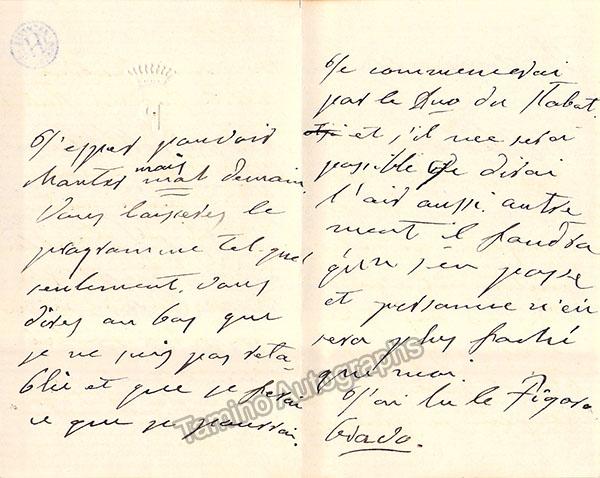 J'espère pouvoir
chanter mais mal demain
Vous laisserez le
programme tel quel
seulement. Vous
direz au bas que
je ne suis pas réta-
blie et que je ferai
ce que je pourrai.
Je commencerai
par le Duo du Stabat
et s'il me sera
possible je dirai
l'air aussi. autre
ment il faudra
qu'on s'en passe
et personne n'en
sera plus fachée
que moi.
J'ai lu le Figaro
Bravo.
Tamino Autographs